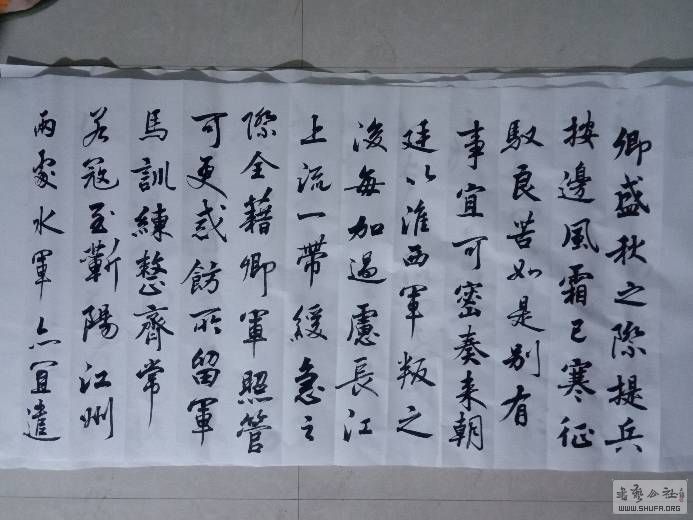 卿盛秋之際提兵
按邊風霜已寒征
馭良苦如是別有
事宜可密奏来朝
廷以淮西軍叛之
後每加過慮長江
上流一帶緩急之
際全藉卿軍照管
可更戒飭所留軍
馬訓練整齊常
若寇至蘄陽江州
兩處水軍亦宜遣
书艺公社
WWW.SHUFA.ORG